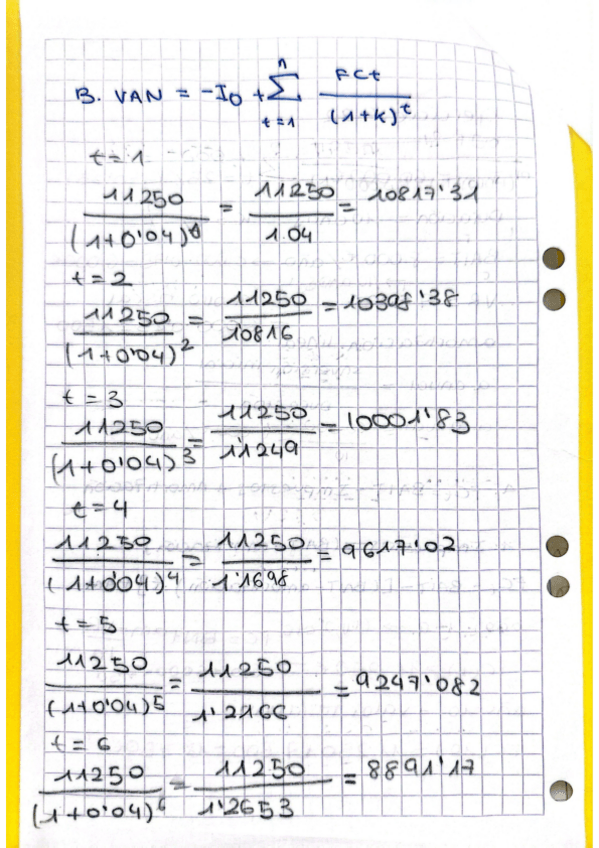 B. VAN = -I0 + n Σ t=1 FCt / (1+k)^t
t=1
11250 / (1+0'04)^1 = 11250 / 1.04 = 10817'31
t=2
11250 / (1+0'04)^2 = 11250 / 1'0816 = 10398'38
t=3
11250 / (1+0'04)^3 = 11250 / 1'1249 = 10001'83
t=4
11250 / (1+0'04)^4 = 11250 / 1'1698 = 9617'02
t=5
11250 / (1+0'04)^5 = 11250 / 1'2166 = 9247'082
t=6
11250 / (1+0'04)^6 = 11250 / 1'2653 = 8891'17